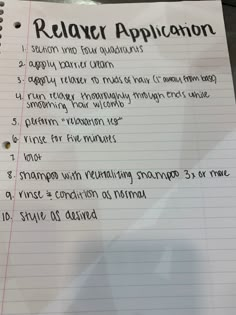 Relaxer Application
1. section into four quadrants
2. apply barrier cream
3. apply relaxer to mids of hair (½" away from base)
4. run relaxer thouroughly through ends while
smoothing hair w/comb
5. perform "relaxation test"
6. rinse for five minutes
7. blot
8. shampoo with neutralizing shampoo 3x or more
9. rinse & condition as normal
10. style as desired